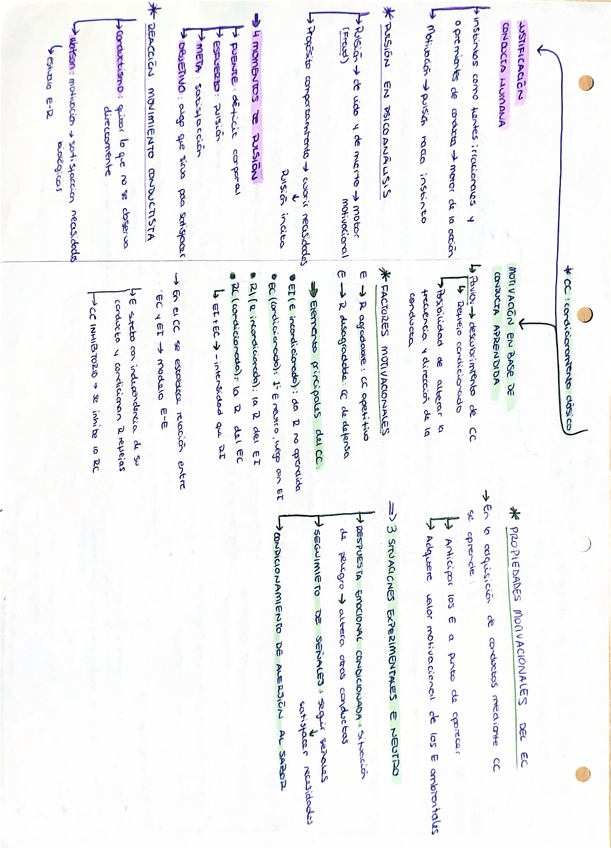 * CC: condicionamiento clásico
JUSTIFICACIÓN
CONDUCTA HUMANA
Instintos como fuentes irracionales y
apremiantes de conducta → motor de la acción
Motivación → pulsión nace instinto
* PULSIÓN EN PSICOANÁLISIS
Pulsión → de vida y de muerte → motor
(Freud) motivacional
Propósito comportamiento → cubrir necesidades
↓
Pulsión incita
⇒ 4 MOMENTOS DE PULSIÓN
FUENTE: déficit corporal
ESFUERZO: pulsión
META: satisfacción
OBJETIVO: algo que sirva para satisfacer
* REACCIÓN MOVIMIENTO CONDUCTISTA
Conductismo: quitar lo que no se observa
directamente
Watson: motivación → satisfacción necesidades
biológicas
↳ estudio E-R
MOTIVACIÓN EN BASE DE
CONDUCTA APRENDIDA
↳ Pavlov → descubrimiento de CC
↳ Reflejo condicionado
↳ Posibilidad de alterar la
frecuencia y dirección de la
conducta
* FACTORES MOTIVACIONALES
E → R agradable: CC apetitivo
E → R desagradable: CC de defensa
⇒ Elementos principales del CC:
• EI (E incondicionado): da R no aprendida
• EC (condicionado): 1º E neutro, luego con EI
• RI (R incondicionada): la R del EI
• RC (condicionada): la R del EC
↳ EI + EC → - intensidad que RI
→ En el CC se establece relación entre
EC y EI → modelo E-E
↳ E surte con independencia de su
conducta y condicionan R reflejas
↳ CC INHIBITORIO → se inhibe la RC
* PROPIEDADES MOTIVACIONALES DEL EC
→ En la adquisición de conductas mediante CC
se aprende:
↳ Anticipar los E a punto de aparecer
↳ Adquiere valor motivacional de los E ambientales
⇒ 3 SITUACIONES EXPERIMENTALES E NEUTRO
RESPUESTA EMOCIONAL CONDICIONADA: situación
de peligro → altera otras conductas
SEGUIMIETO DE SEÑALES: seguir señales
↓
satisfacer necesidades
CONDICIONAMIENTO DE AVERSIÓN AL SABOR